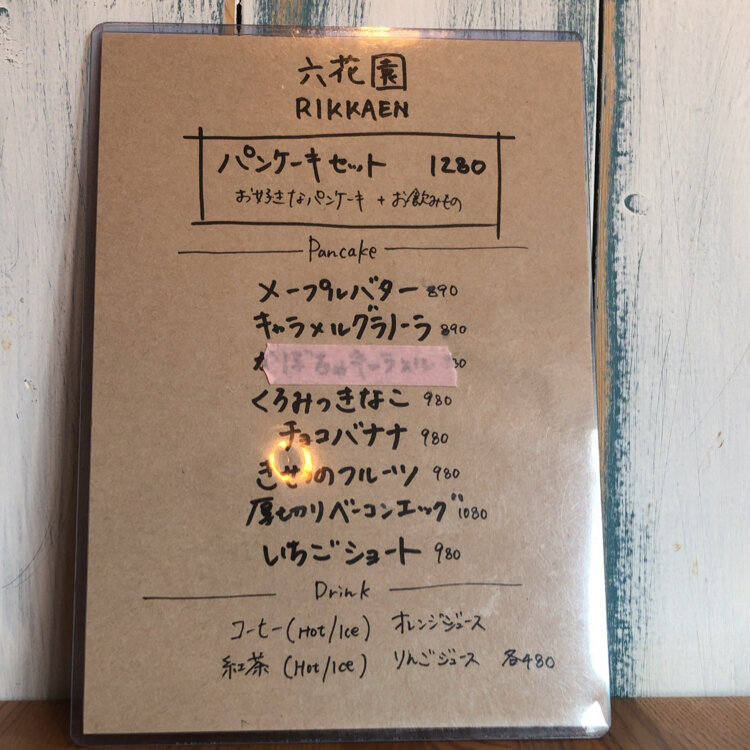 六花園
RIKKAEN
パンケーキセット 1280
お好きなパンケーキ + お飲みもの
Pancake
メープルバター 890
キャラメルグラノーラ 890
くろみつきなこ 980
チョコバナナ 980
きせつのフルーツ 980
厚切りベーコンエッグ 1080
いちごショート 980
Drink
コーヒー(Hot/Ice) オレンジジュース
紅茶 (Hot/Ice) りんごジュース 各480